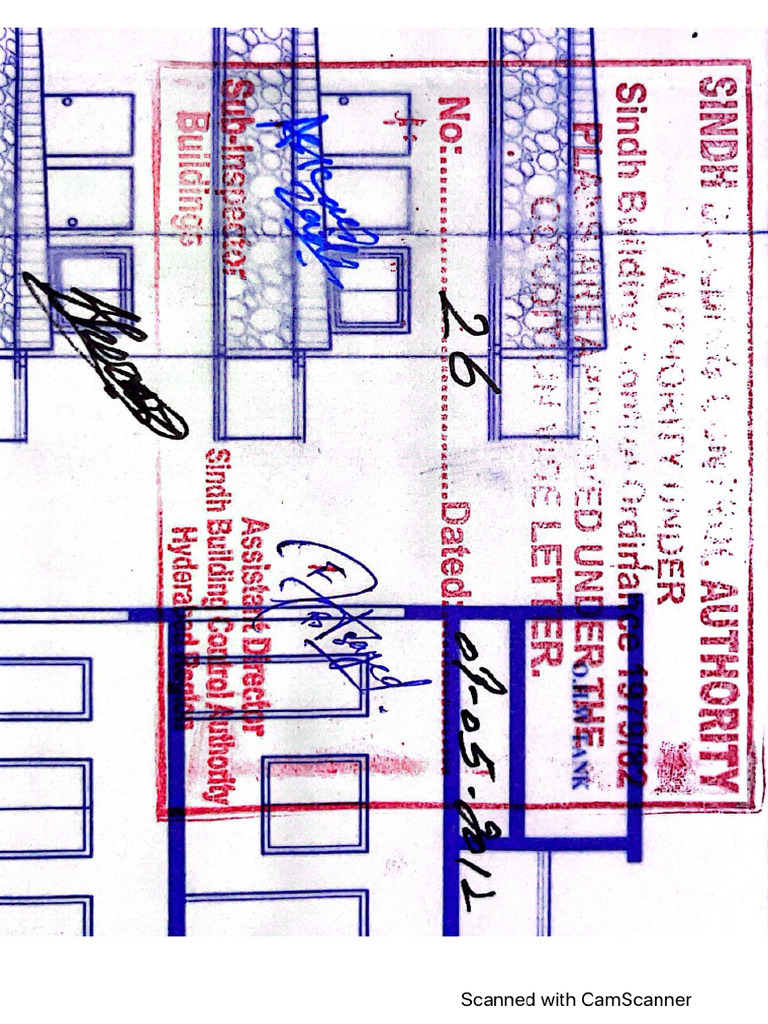 SINDH BUILDING CONTROL AUTHORITY
AUTHORITY UNDER
Sindh Building Control Ordinance 1979/82
PLANS AREA APPROVED UNDER THE
CONDITION VIDE LETTER.
O.H.W.TANK
No:.......26.......Dated:.07-05-2012
Sub-Inspector
Buildings
Assistant Director
Sindh Building Control Authority
Hyderabad Region
Scanned with CamScanner